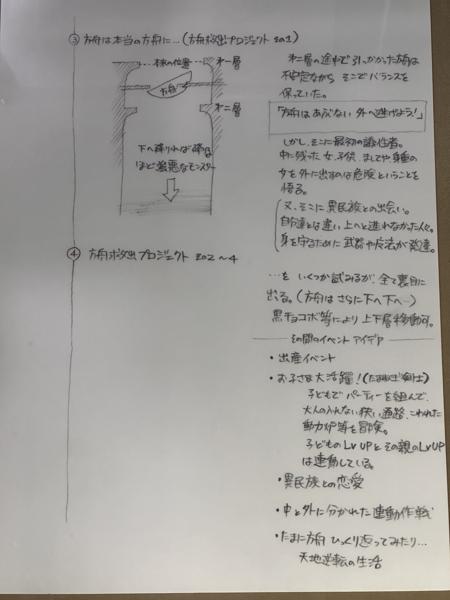 ③ 方舟は本当の方舟に…(方舟救出プロジェクト その1)
…本来の位置…
第一層
方舟
第二層
下へ降りれば降りる
ほど強悪なモンスター
第一層の途中で引っかかった方舟は
不安定ながら そこでバランスを
保っていた。
「方舟はあぶない 外へ逃げよう!」
しかし、そこに最初の犠牲者。
中に残った女、子供、ましてや身重の
女を外に出すのは危険ということを
悟る。
又、そこに異民族との出会い。
自分達とは違い上へと逃れなかった人々。
身を守るために武器や魔法が発達。
④ 方舟救出プロジェクト その2〜4
…を いくつか試みるが、全て裏目に
出る。(方舟はさらに下へ下へ…)
黒チョコボ等により上下層移動可。
その間のイベント アイデア
・出産イベント
・お子さま大活躍!(たまねぎ剣士)
子どもでパーティーを組んで、
大人の入れない狭い通路、こわれた
動力炉等を冒険。
子どものLvUPとその親のLvUP
は連動している。
・異民族との恋愛
・中と外に分かれた連動作戦
・たまに方舟ひっくり返ってみたり…
天地逆転の生活